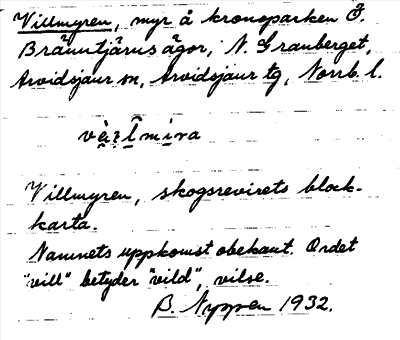 Villmyren, myr å kronoparken Ö.
Bränntjärns ägor, N. Granberget,
Arvidsjaur sn, Arvidsjaur tg, Norrb. l.
Villmyren, skogsrevirets block-
karta.
Namnets uppkomst obekant. Ordet
"vill" betyder "vild", vilse.
B. Nyppen 1932.